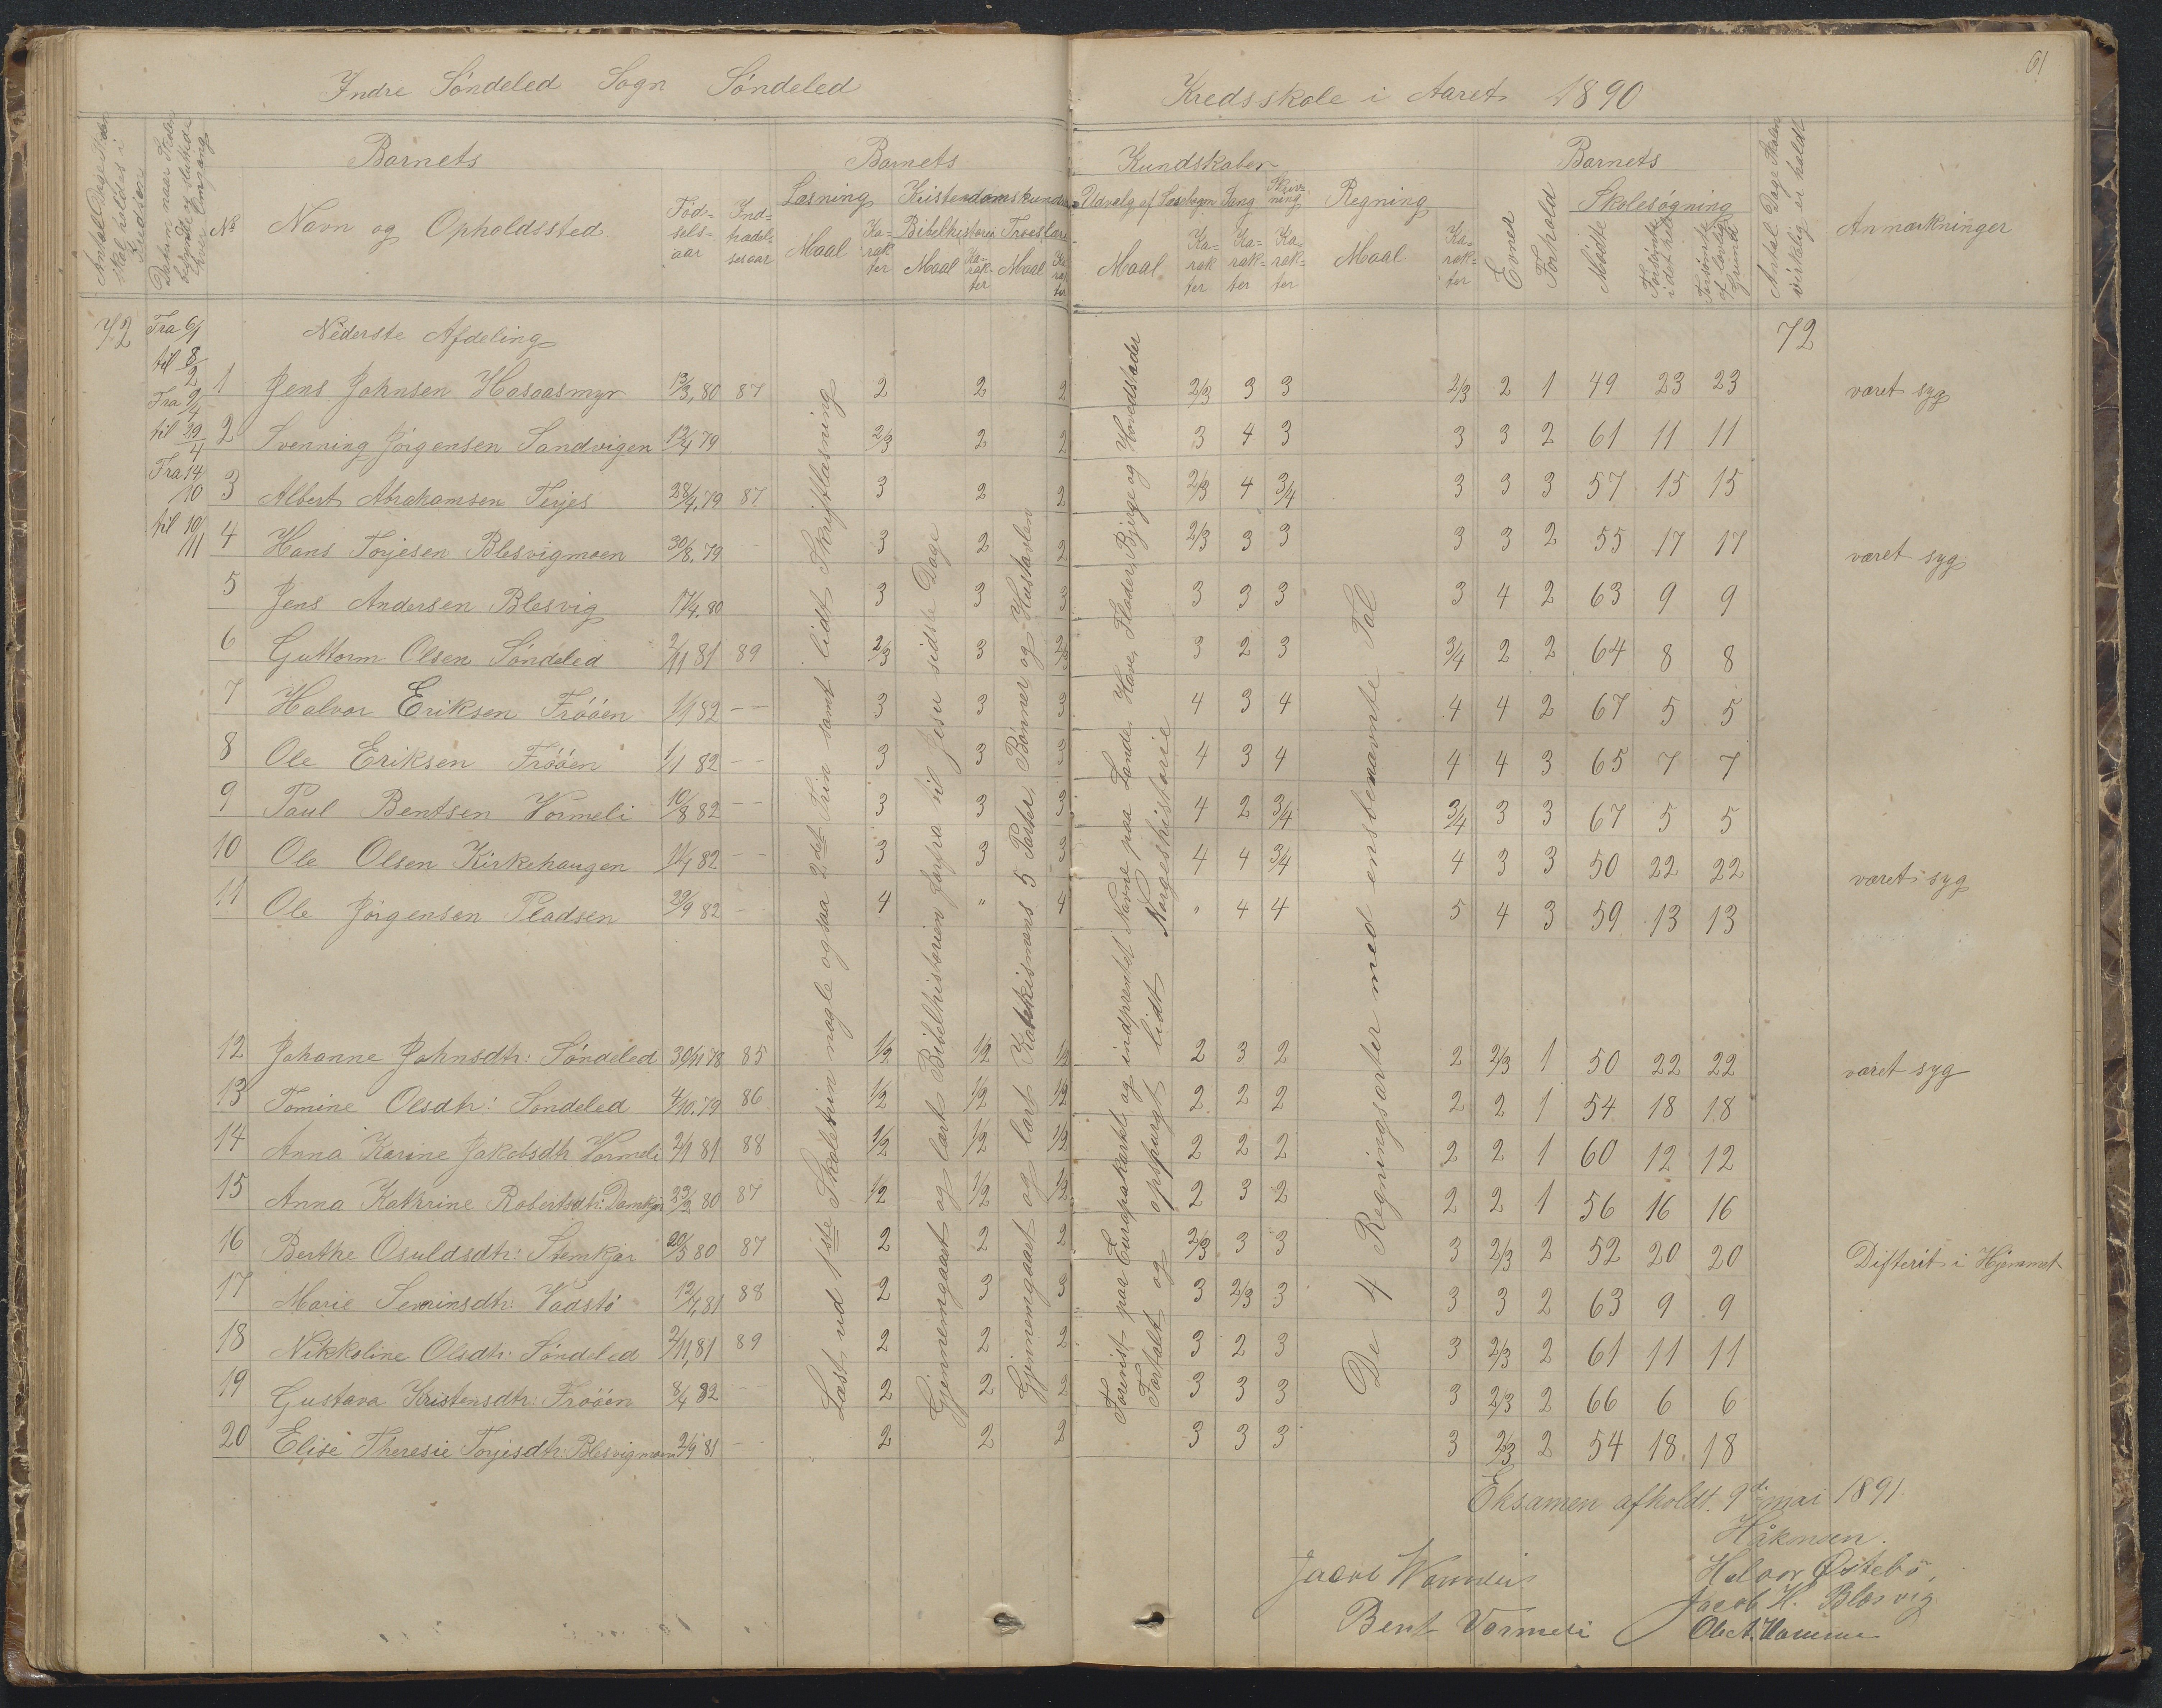 61
Indre Söndeled Sogn Söndeled Kredsskole i Aaret 1890
Barnets Barnets Kundskaber Barnets
Antal Dage Skolen skal holdes i Kredsen
Datum naar Skolen begyndte og sluttede hver Omgang
No
Navn og Opholdssted
Födselsaar
Indtrædelsesaar
Læsning Kristendomskundskab Udvalg af Læsebogen Sang Skrivning Regning
Bibelhistorie Troeslære
Maal Karakter Maal Karakter Maal Karakter Maal Karakter Karakter Karakter Maal Karakter
Evner Forhold Skolesögning
Mödte Forsömte i det hele Forsömte af lovlig Grund
Antal Dage Skolen virkelig er holdt
Anmærkninger
72 Fra 6/1 til 8/2 Fra 9/4 til 29/4 Fra 14/10 til 10/11
Nederste Afdeling 72
1 Jens Johnsen Hasaasmyr 13/3,80 87 2 2 2 2/3 3 3 2/3 2 1 49 23 23 været syg
2 Svenning Jörgensen Sandvigen 12/4 79 2/3 2 2 3 4 3 3 3 2 61 11 11
3 Albert Abrahamsen Terjes 28/4,79 87 3 2 2 2/3 4 3/4 3 3 3 57 15 15
4 Hans Torjesen Blesvigmoen 30/8,79 3 2 2 2/3 3 3 3 3 2 55 17 17 været syg
5 Jens Andersen Blesvig 17/4.80 3 3 3 3 3 3 3 4 2 63 9 9
6 Guttorm Olsen Söndeled 2/11 81 89 2/3 3 2/3 3 2 3 3/4 2 2 64 8 8
7 Halvor Eriksen Fröóen 1/1 82 -- 3 3 3 4 3 4 4 4 2 67 5 5
8 Ole Eriksen Fröóen 1/1 82 -- 3 3 3 4 3 4 4 4 3 65 7 7
9 Paul Bentsen Vormeli 10/8 82 -- 3 3 3 4 2 3/4 3/4 3 3 67 5 5
10 Ole Olsen Kirkehaugen 1/4 82 -- 3 3 3 4 4 3/4 4 3 3 50 22 22 været syg
11 Ole Jörgensen Pladsen 29/9 82 - 4 " 4 " 4 4 5 4 3 59 13 13
12 Johanne Johnsdtr: Söndeled 30/11.78 85 1/2 1/2 1/2 2 3 2 2 2/3 1 50 22 22 været syg
13 Tomine Olsdtr: Söndeled 4/10.79 86 1/2 1/2 1/2 2 2 2 2 2 1 54 18 18
14 Anna Karine Jakobsdtr Vormeli 2/1 81 88 1/2 1/2 1/2 2 2 2 2 2 1 60 12 12
15 Anna Kathrine Robertsdtr: 23/2 80 87 1/2 1/2 1/2 2 3 2 2 2 1 56 16 16
16 Berthe Osuldsdtr: Stemkjær 20/5 80 87 2 2 2 2/3 3 3 3 2/3 2 52 20 20 Difterit i Hjemmet
17 Marie Severinsdtr: Vadstö 12/4 81 88 2 3 3 3 2/3 3 3 3 2 63 9 9
18 Nikkoline Olsdtr: Söndeled 2/11,81 89 2 2 2 3 2 3 3 2/3 2 61 11 11
19 Gustava Kristensdtr: Fröóen 8/4 82 -- 2 2 2 3 3 3 3 2/3 2 66 6 6
20 Elise Theresie Torjisdtr: Blesvigmoen 2/9 81 -- 2 2 2 3 3 3 3 2/3 2 54 18 18
Læst ved 1ste Skoletrin nogle ogsaa 2det Trin samt lidt Skriftlæsning
Gjennemgaaet og lært Bibelhistorien forfra til Jesu sidste Dage
Gjennemgaaet og lært Katekismens 5 Parter, Bönner og Hustavlen
Forevist paa Europakartet og indprentet Navne paa Lande, Have, Floder, Bjerge og Hovedstæder
Fortalt og opspurgt lidt Norgeshistorie
De 4 Regningsarter med ensbenævnte Tal
Eksamen afholdt 9de mai 1891.
Håkonsen.
Jacob Wormeli Halvor Östebö,
Jacob H. Blesvig
Bent Vormeli Ole A. Hamme